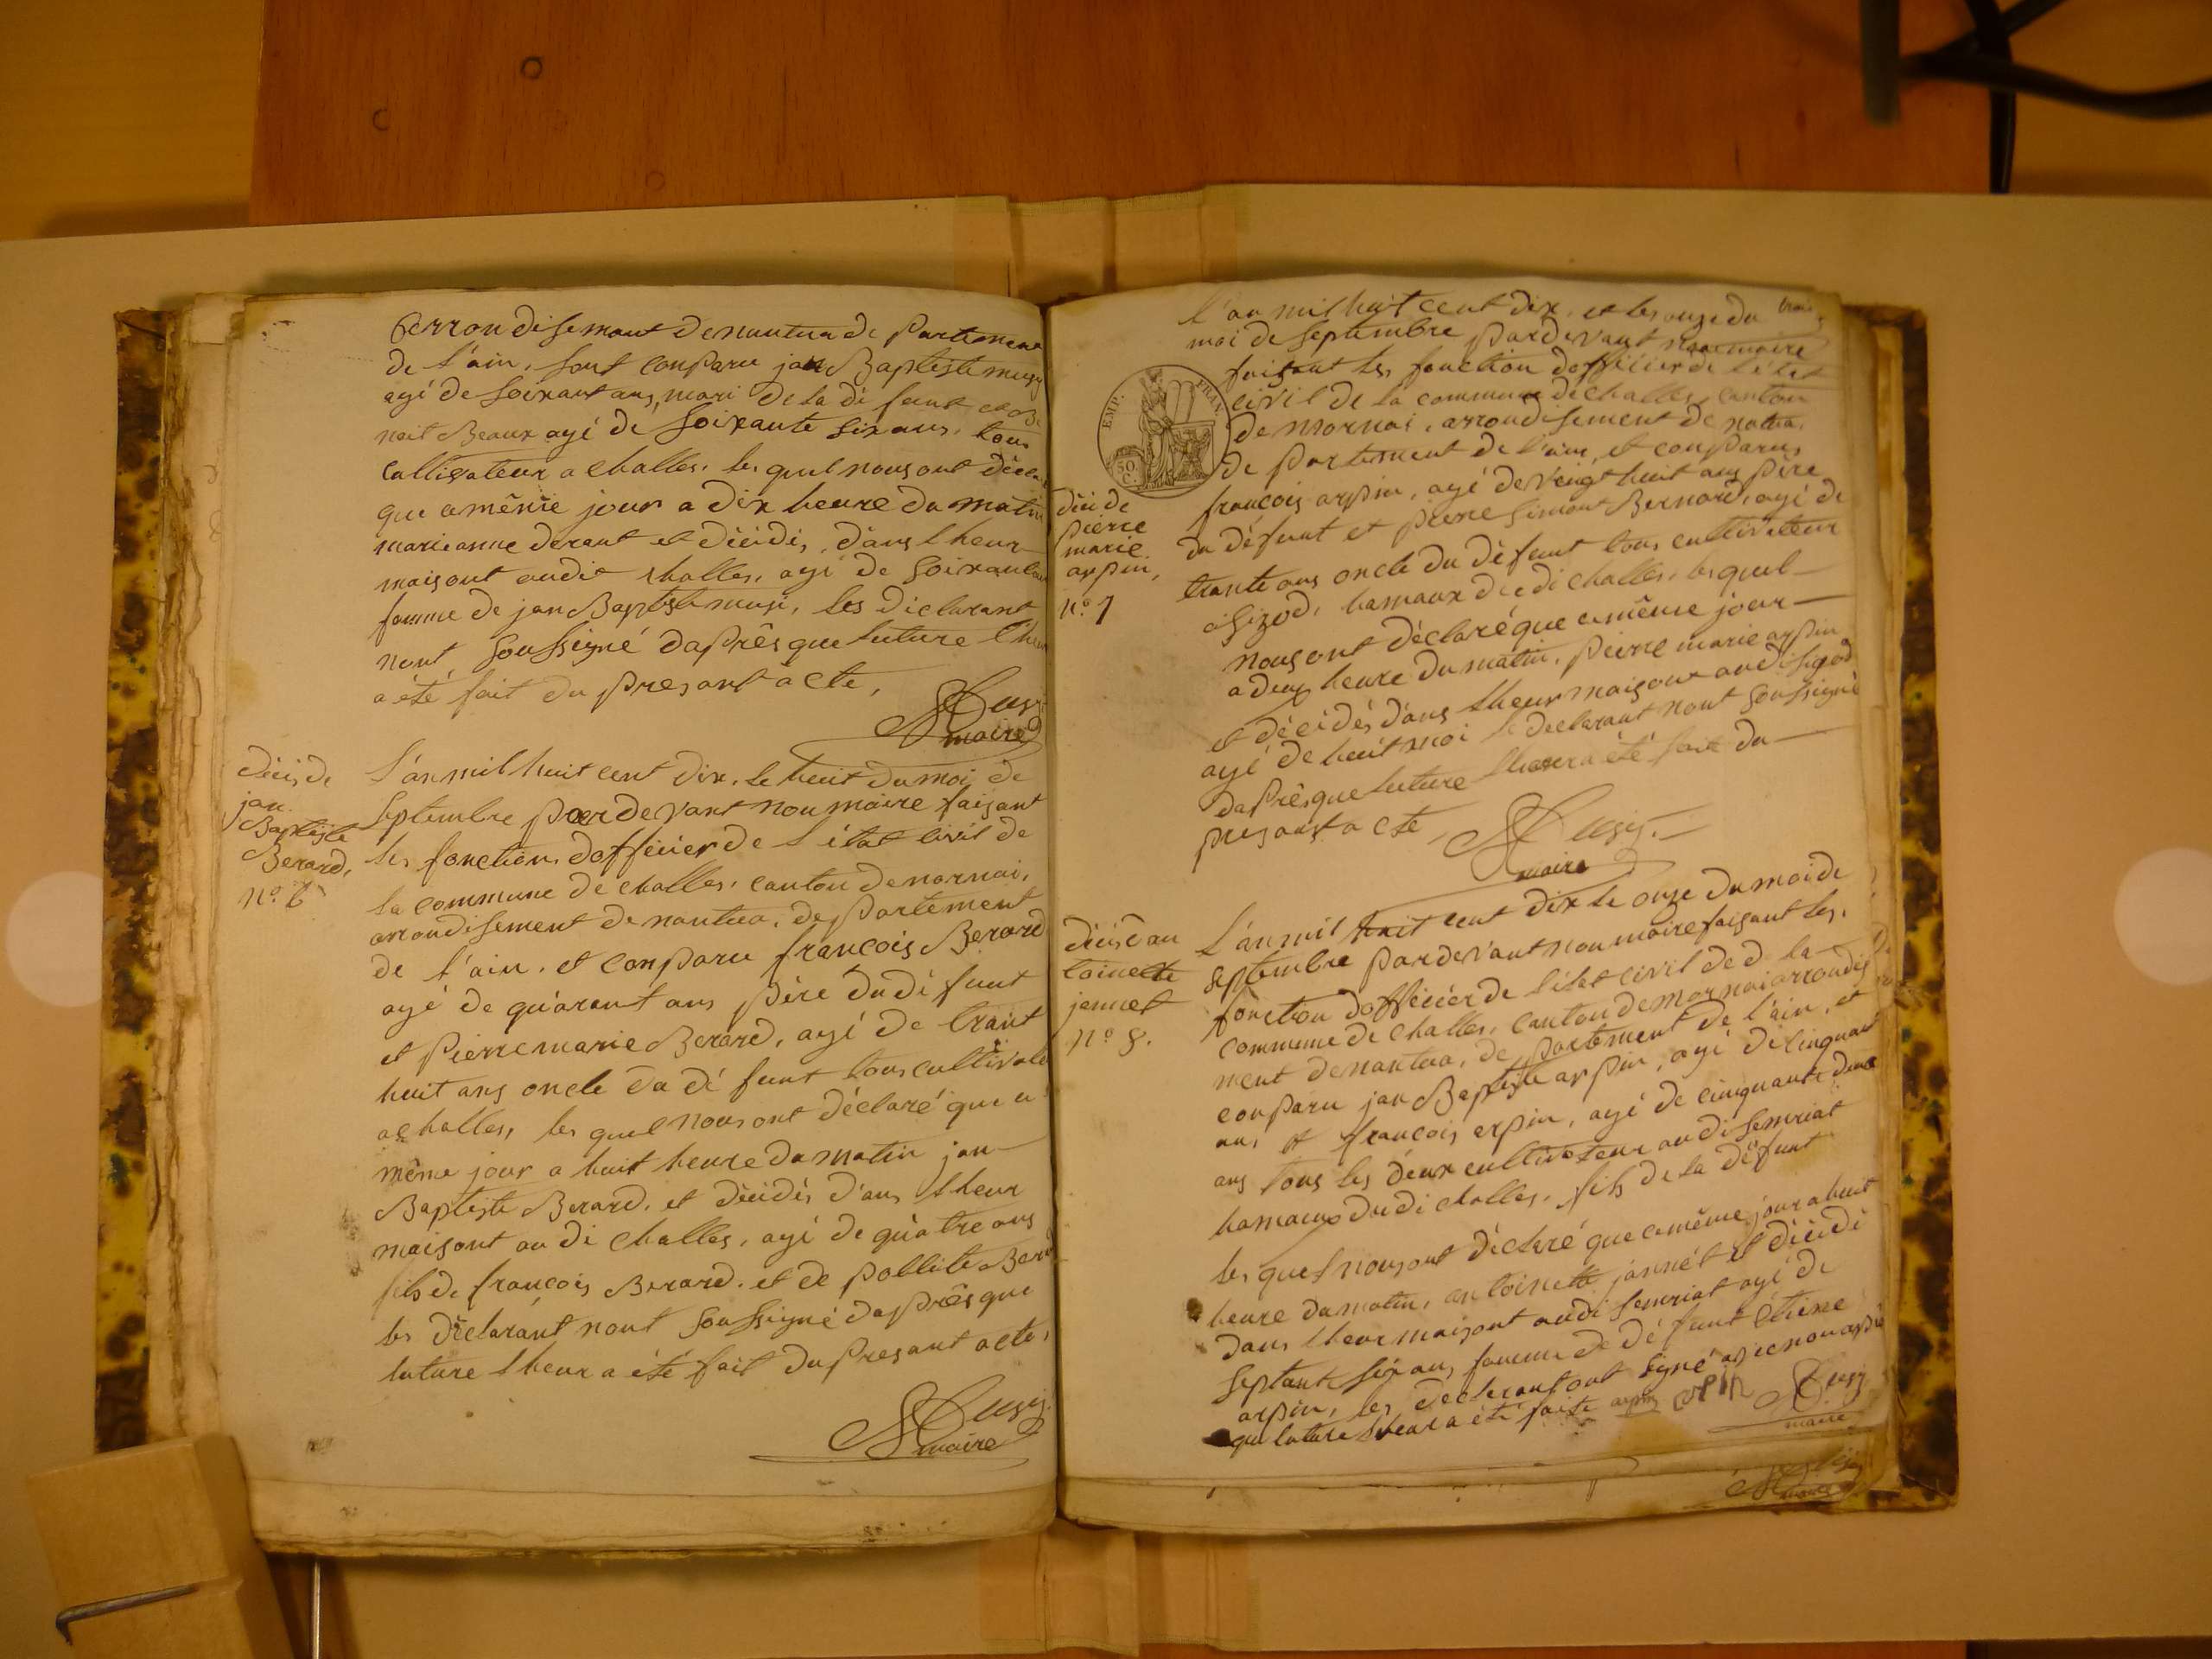 Aerrondisemant de nantua de partemena
de l'ain, sont conparu jan Baptiste musy
agé de soixant ans, mari de la dé funt et Be
noit Beaux agé de soixante six ans, tous
cultivateur a challes, les quel nous ont décla
que ce même jour a dix heure du matin
marieanne derent et décidés, dans lheur
maisont audit challes, agé de soixante
famme de jan Baptiste musi, les déclarant
nont soussigné daprês que luture l'heur
a été fait du presant acte,
maire
décés de
jan
Baptiste
Berard,
n.º 6
L'an mil huit cent dix, le huit du moi de
septembre par devant nou maire faisant
les fonction dofficier de l'état civil de
la commune de challes, canton de mornai,
arrondisement de nantua, de partement
de l'ain, et conparu francois Berard
agé de quarant ans père du dé funt
et pierre marie Berard, agé de trant
huit ans oncle du dé funt tous cultivate
a challes, les quel nous ont déclaré que ce
même jour a huit heure du matin jan
Baptiste Berard, et décidés d'ans lheur
maisont au di challes, agé de quatre ans
fils de francois Berard, et de pollite Berard
les déclarant nont soussigné daprês que
luture lheur a été fait du presant acte,
maire
l'an mil huit cent dix, et les onze du
moi de septembre par devant nou maire
faisant les fonction dofficier de l'état
civil de la commune de challes, canton
de mornai, arrondisement de natua,
de partement de l'ain, et conparus
EMP. FRAN.
50.
C.
décé de
pierre
marie
arpin,
n.º 7
francois arpin, agé de veingt huit ans père
du défunt et pierre simont Bernard, agé de
trante ans oncle du défunt tous cultivateur
a sizod, hamaux du di challes, les quel
nous ont déclaré que ce même jour
a deux heure du matin, pierre marie arpin
et décidés dans lheur maisont au di sizod
agé de huit moi le declarant nont soussigné
daprês que luture lheur a été fait du
presant acte
maire
décés dan
toinette
jannet
n.º 8.
L'an mil huit cent dix le onze du moi de
septembre par devant nou maire faisant les
fonction dofficier de l'état civil de d la
commune de challes, canton de mornai arrondis
ment de nantua, de partement de l'ain, et
conparu jan Baptiste arpin, agé de cinquant
ans et francois arpin, agé de cinquante deux
ans tous les deux cultivateur au di senriat
hamaux du di challes, fils de la défunt
les quel nous ont déclaré que ce même jour a huit
heure du matin, antoinette jannét et décidé
dans lheur maisont au di senriat agé de
septante six ans famme de dé funt étiene
arpin, les declarant ont signé avec nou aprè
que luture lheur a été faite arpin arpin
maire
maire